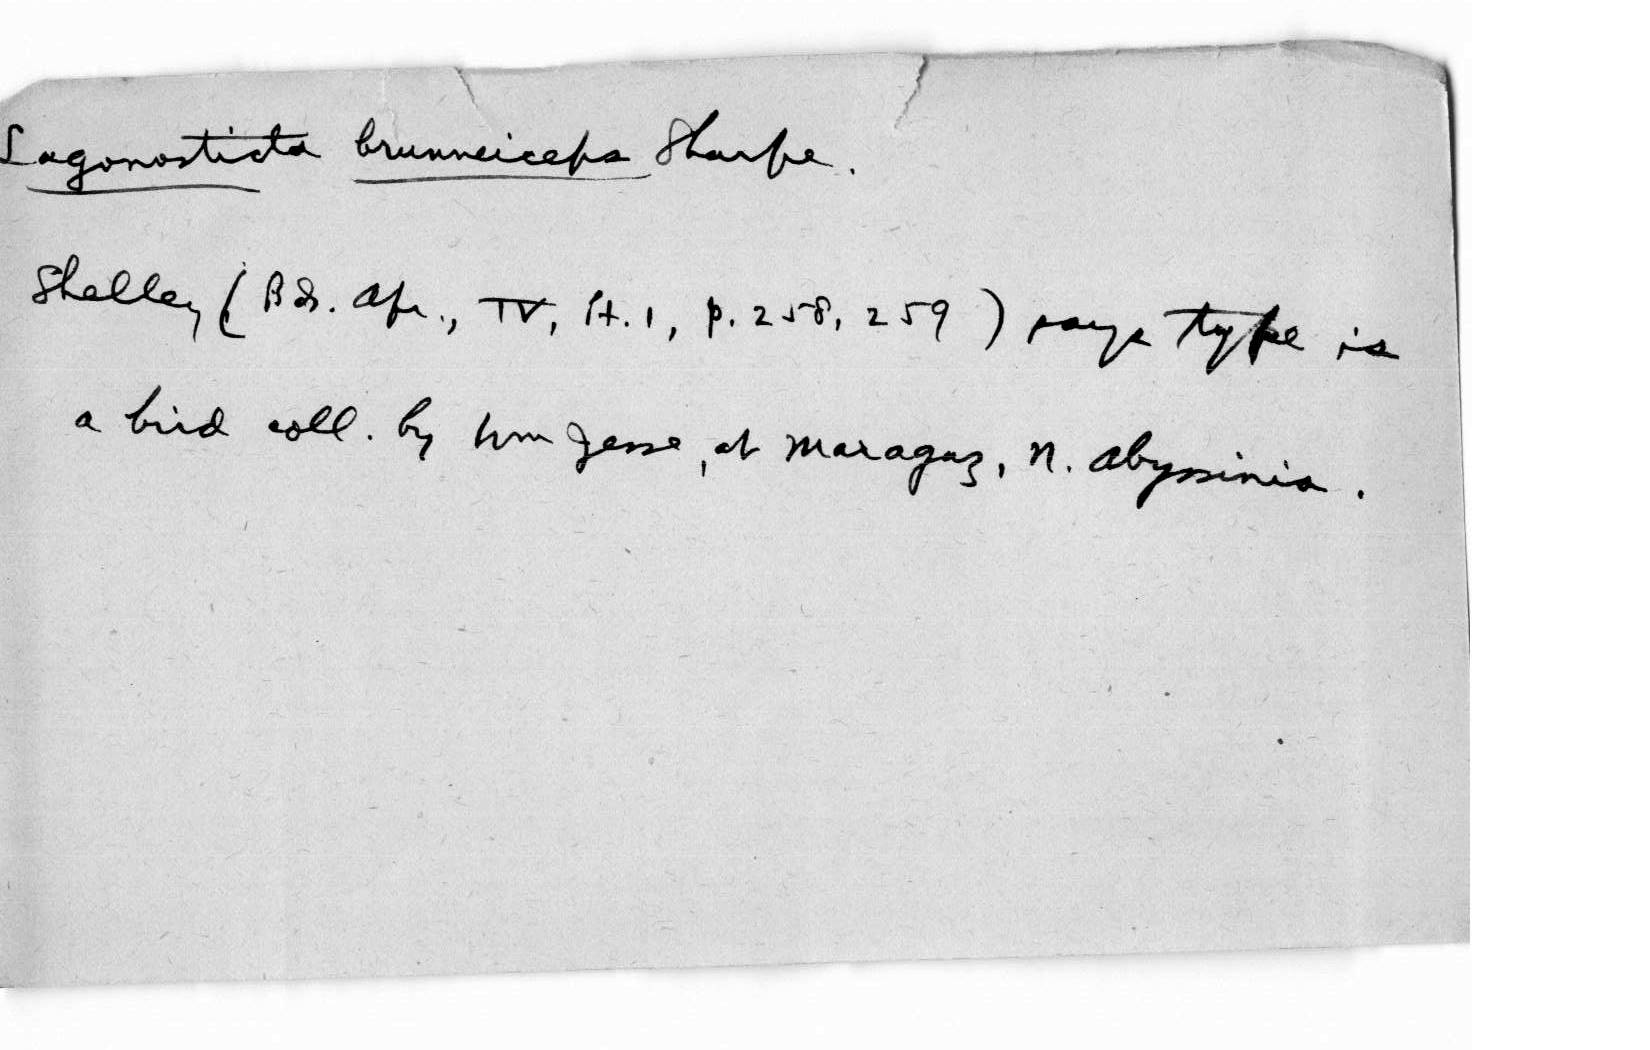 Lagonosticta brunneiceps Sharpe.
Shelley (Bds. Afr., IV, Pt. 1, p. 258, 259) says type is
a bird coll. by Wm Jesse, at Maragaz, N. Abyssinia.